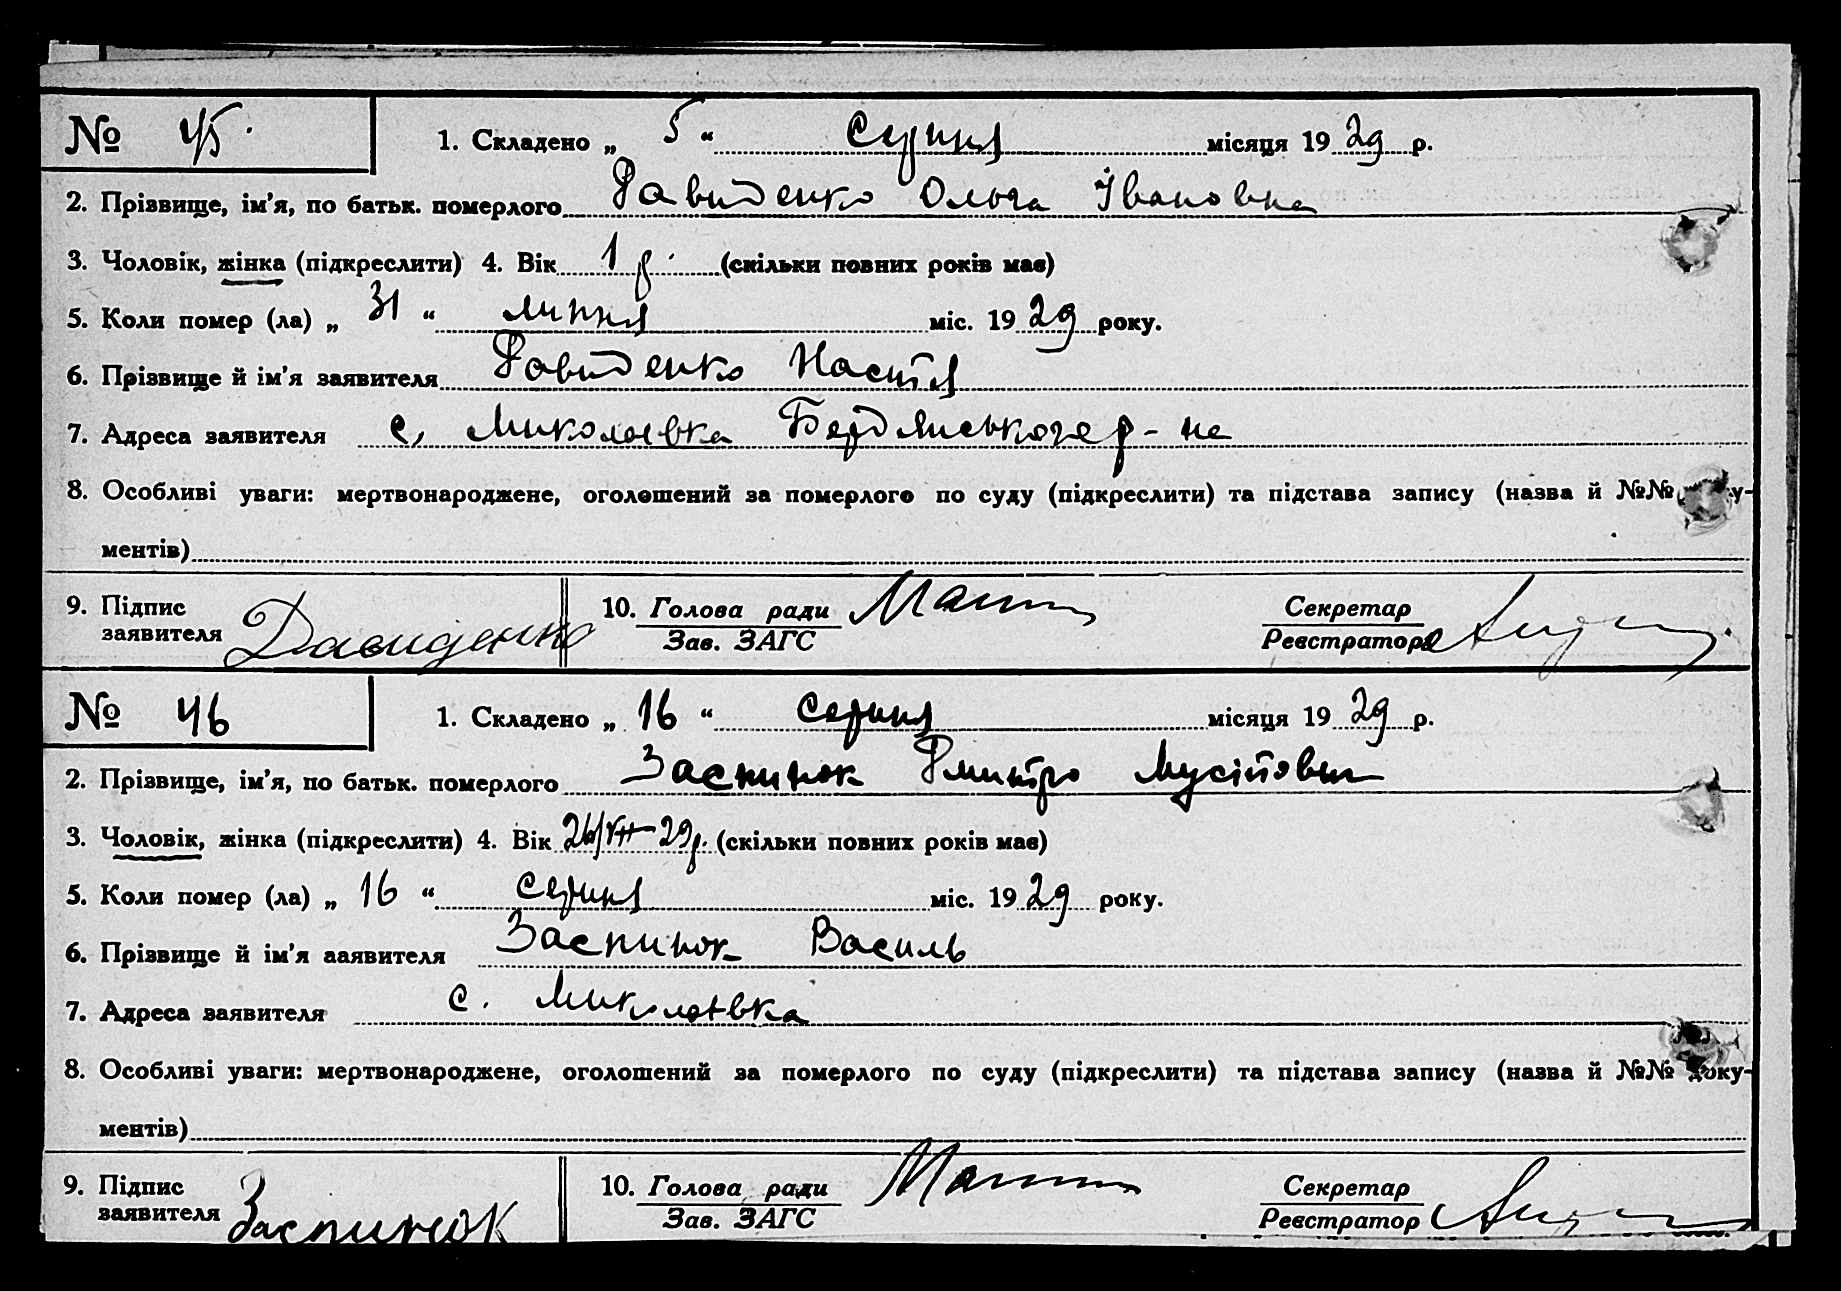 № 45.
1. Складено „ 5 “ серпня місяця 1929 р.
2. Прізвище, ім’я, по батьк. померлого Давиденко Ольга Івановна
3. Чоловік, жінка (підкреслити) 4. Вік 1 р. (скільки повних років має)
5. Коли помер (ла) „ 31 “ липня міс. 1929 року.
6. Прізвище й ім’я заявителя Давиденко Настя
7. Адреса заявителя с, Миколаевка Бердянського р-на
8. Особливі уваги: мертвонароджене, оголошений за померлого по суду (підкреслити) та підстава запису (назва й №№
ментів)
9. Підпис заявителя Давиденко
10. Голова ради
Зав. ЗАГС
Секретар
Реєстратор
№ 46
1. Складено „ 16 “ серпня місяця 1929 р.
2. Прізвище, ім’я, по батьк. померлого Заспинок Дмитро Мусійович
3. Чоловік, жінка (підкреслити) 4. Вік 26/VII-29р. (скільки повних років має)
5. Коли помер (ла) „ 16 “ серпня міс. 1929 року.
6. Прізвище й ім’я заявителя Заспинок Василь
7. Адреса заявителя с. Миколаевка
8. Особливі уваги: мертвонароджене, оголошений за померлого по суду (підкреслити) та підстава запису (назва й №№ доку-
ментів)
9. Підпис заявителя
10. Голова ради
Зав. ЗАГС
Секретар
Реєстратор